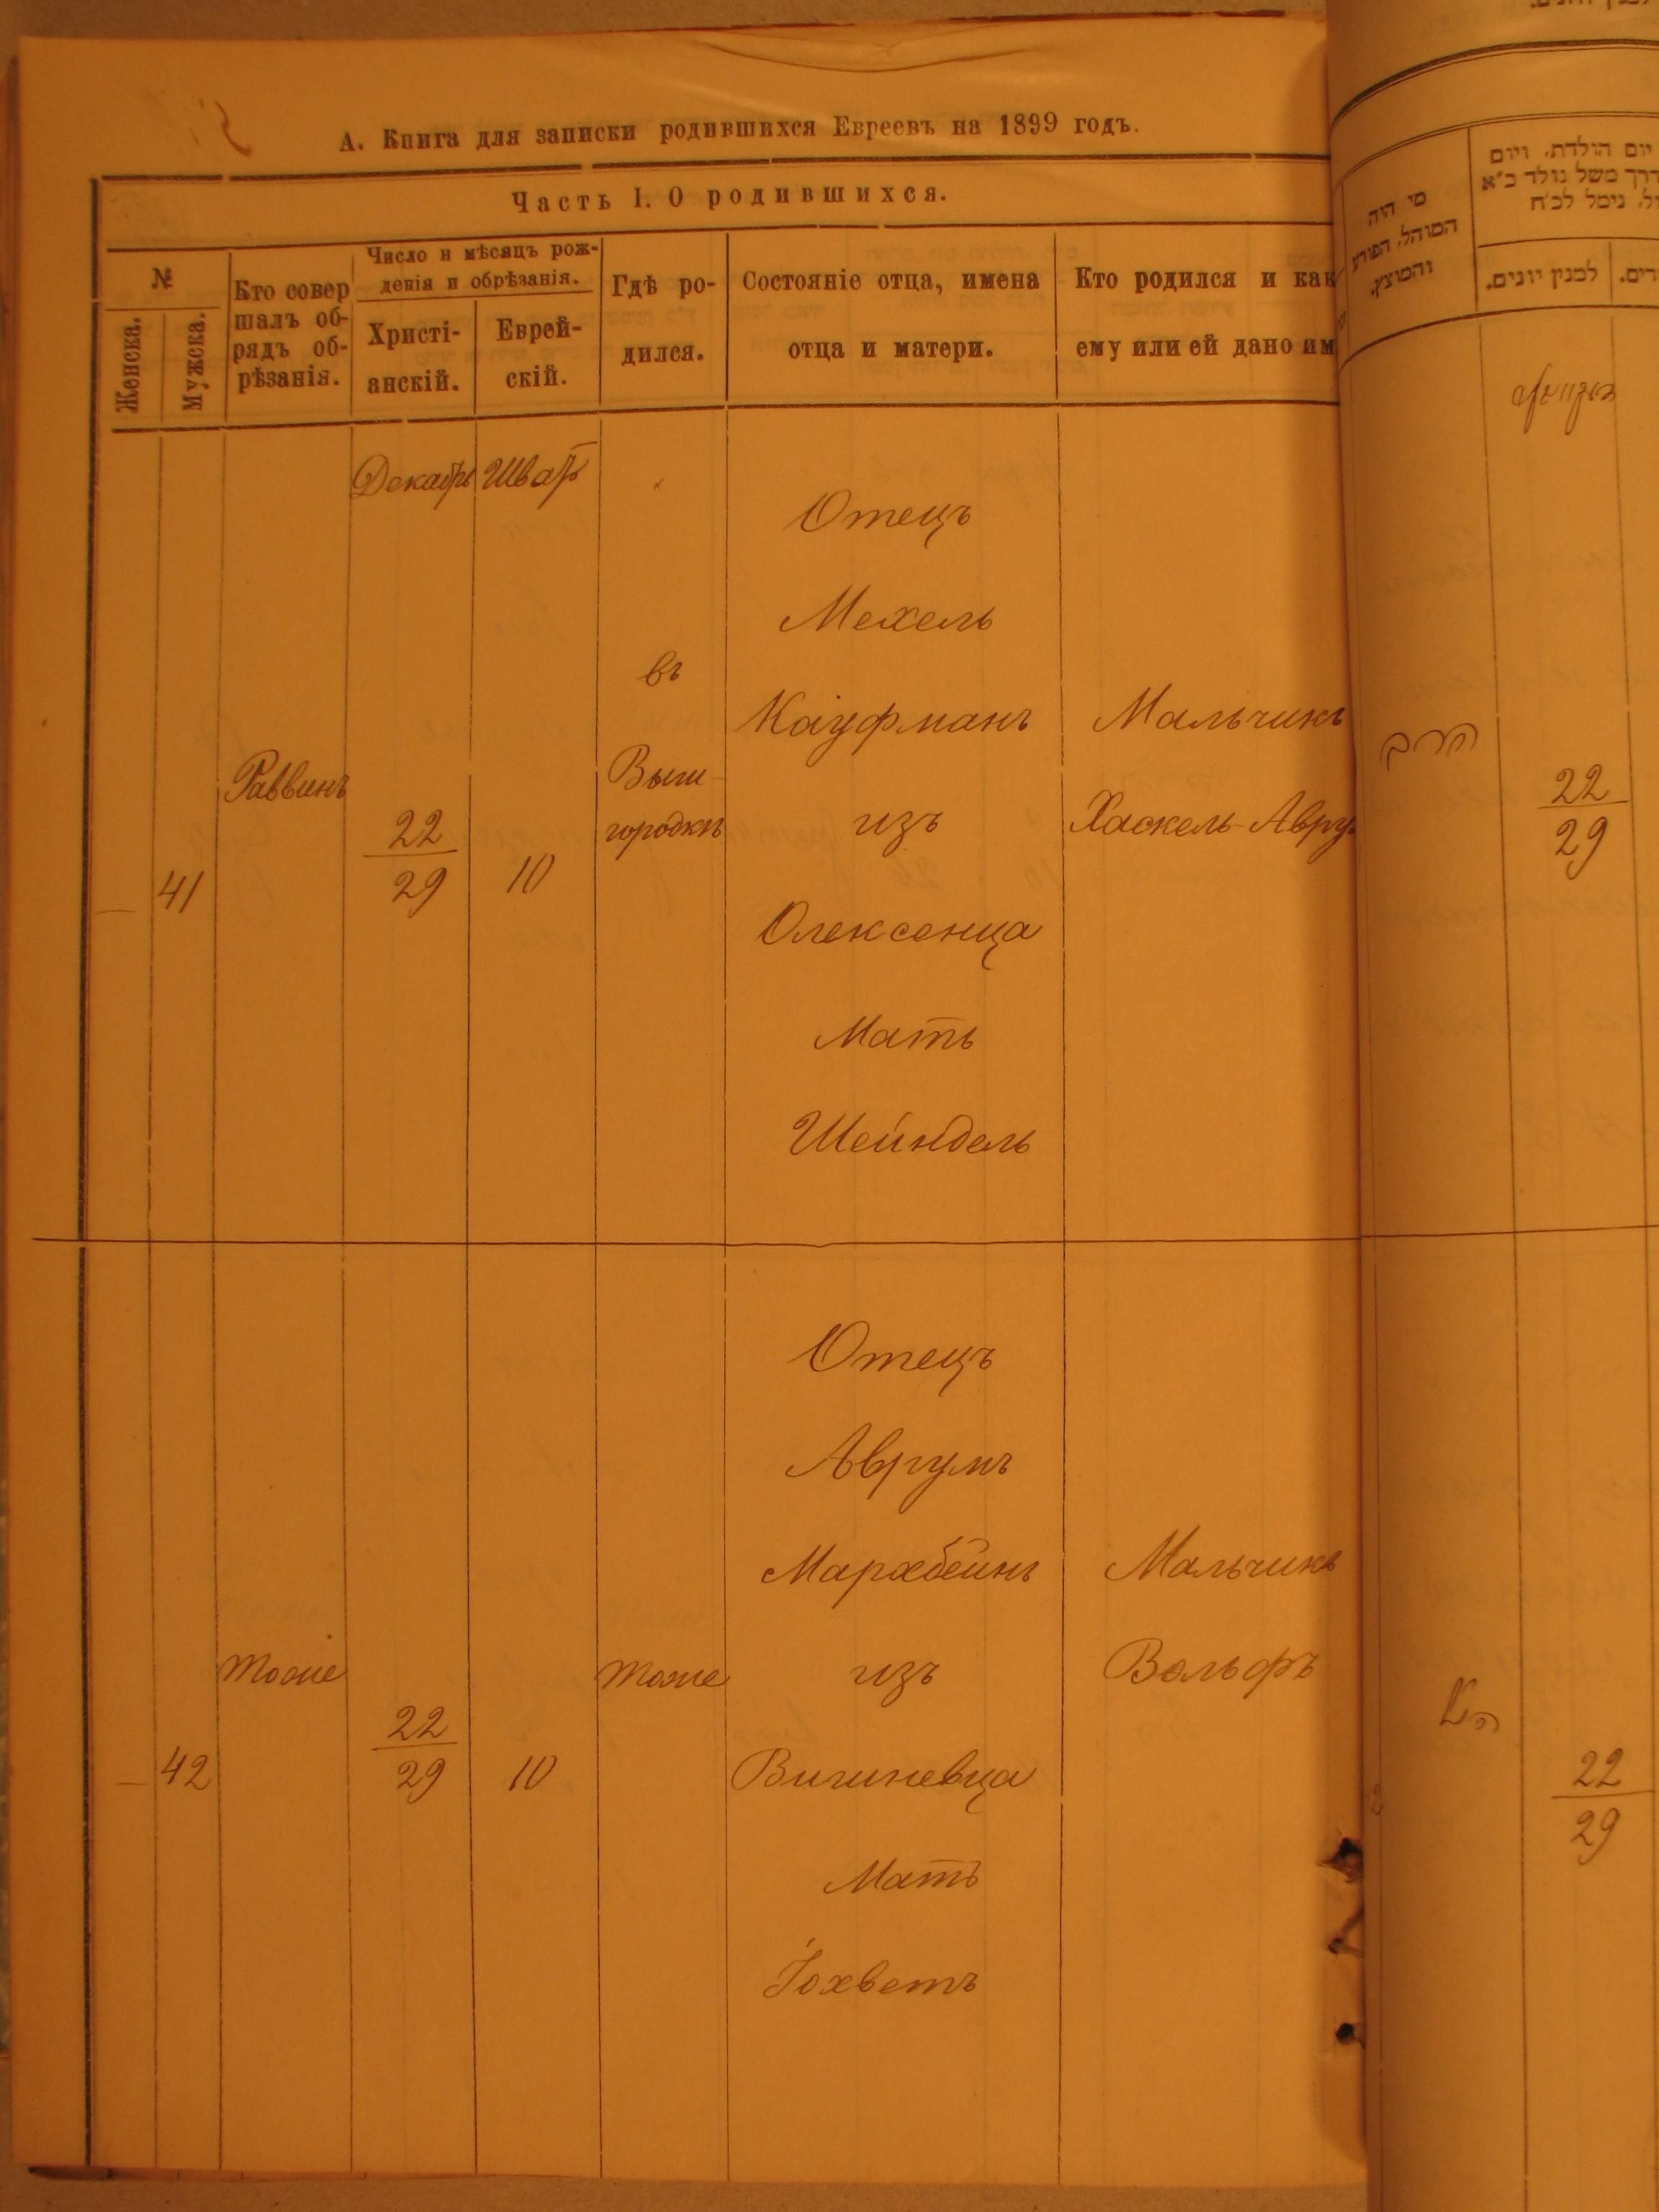 А. Книга для записки родившихся Евреевъ на 1899 годъ.
Часть I. О родившихся.
№
Женска.
Мужска.
Кто совер
шалъ об-
рядъ об-
рѣзанія.
Число и мѣсяцъ рож-
денія и обрѣзанія.
Христі-
анскій.
Еврей-
скій.
Гдѣ ро-
дился.
Состояніе отца, имена
отца и матери.
Кто родился и как
ему или ей дано им
Декабрь
Шват
41
Раввинъ
22
29
10
въ
Выш-
городкѣ
Отецъ
Мехель
Кауфманъ
изъ
Олексенца
Мать
Шейндель
Мальчикъ
Хаскель-Авру
42
тоже
22
29
10
тоже
Отецъ
Аврумъ
Мархбейнъ
изъ
Вишневца
Мать
Іохветъ
Мальчикъ
Вольфъ
מי היה
המוהל, הפורע
והמוצץ.
יום הולדת, ויום
דרך משל נולד כ״א
יל, נימל לכ״ח
למנין יונים.
הרב
22
29
22
29